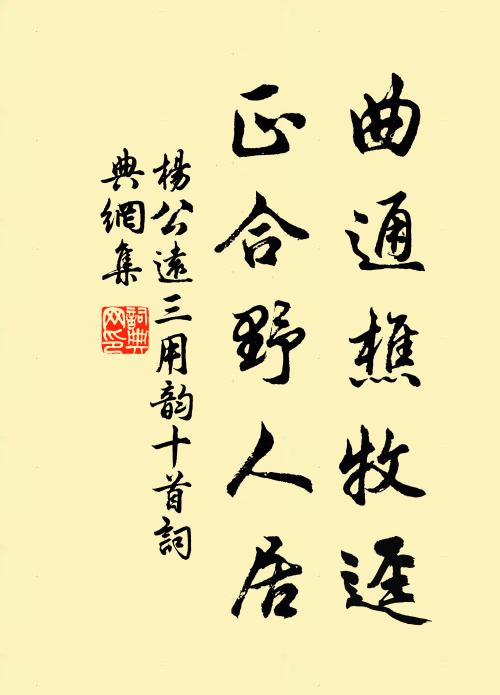 曲通樵牧逕
正合野人居
楊公遠三用韵十首詞
典網集
詞典
网印